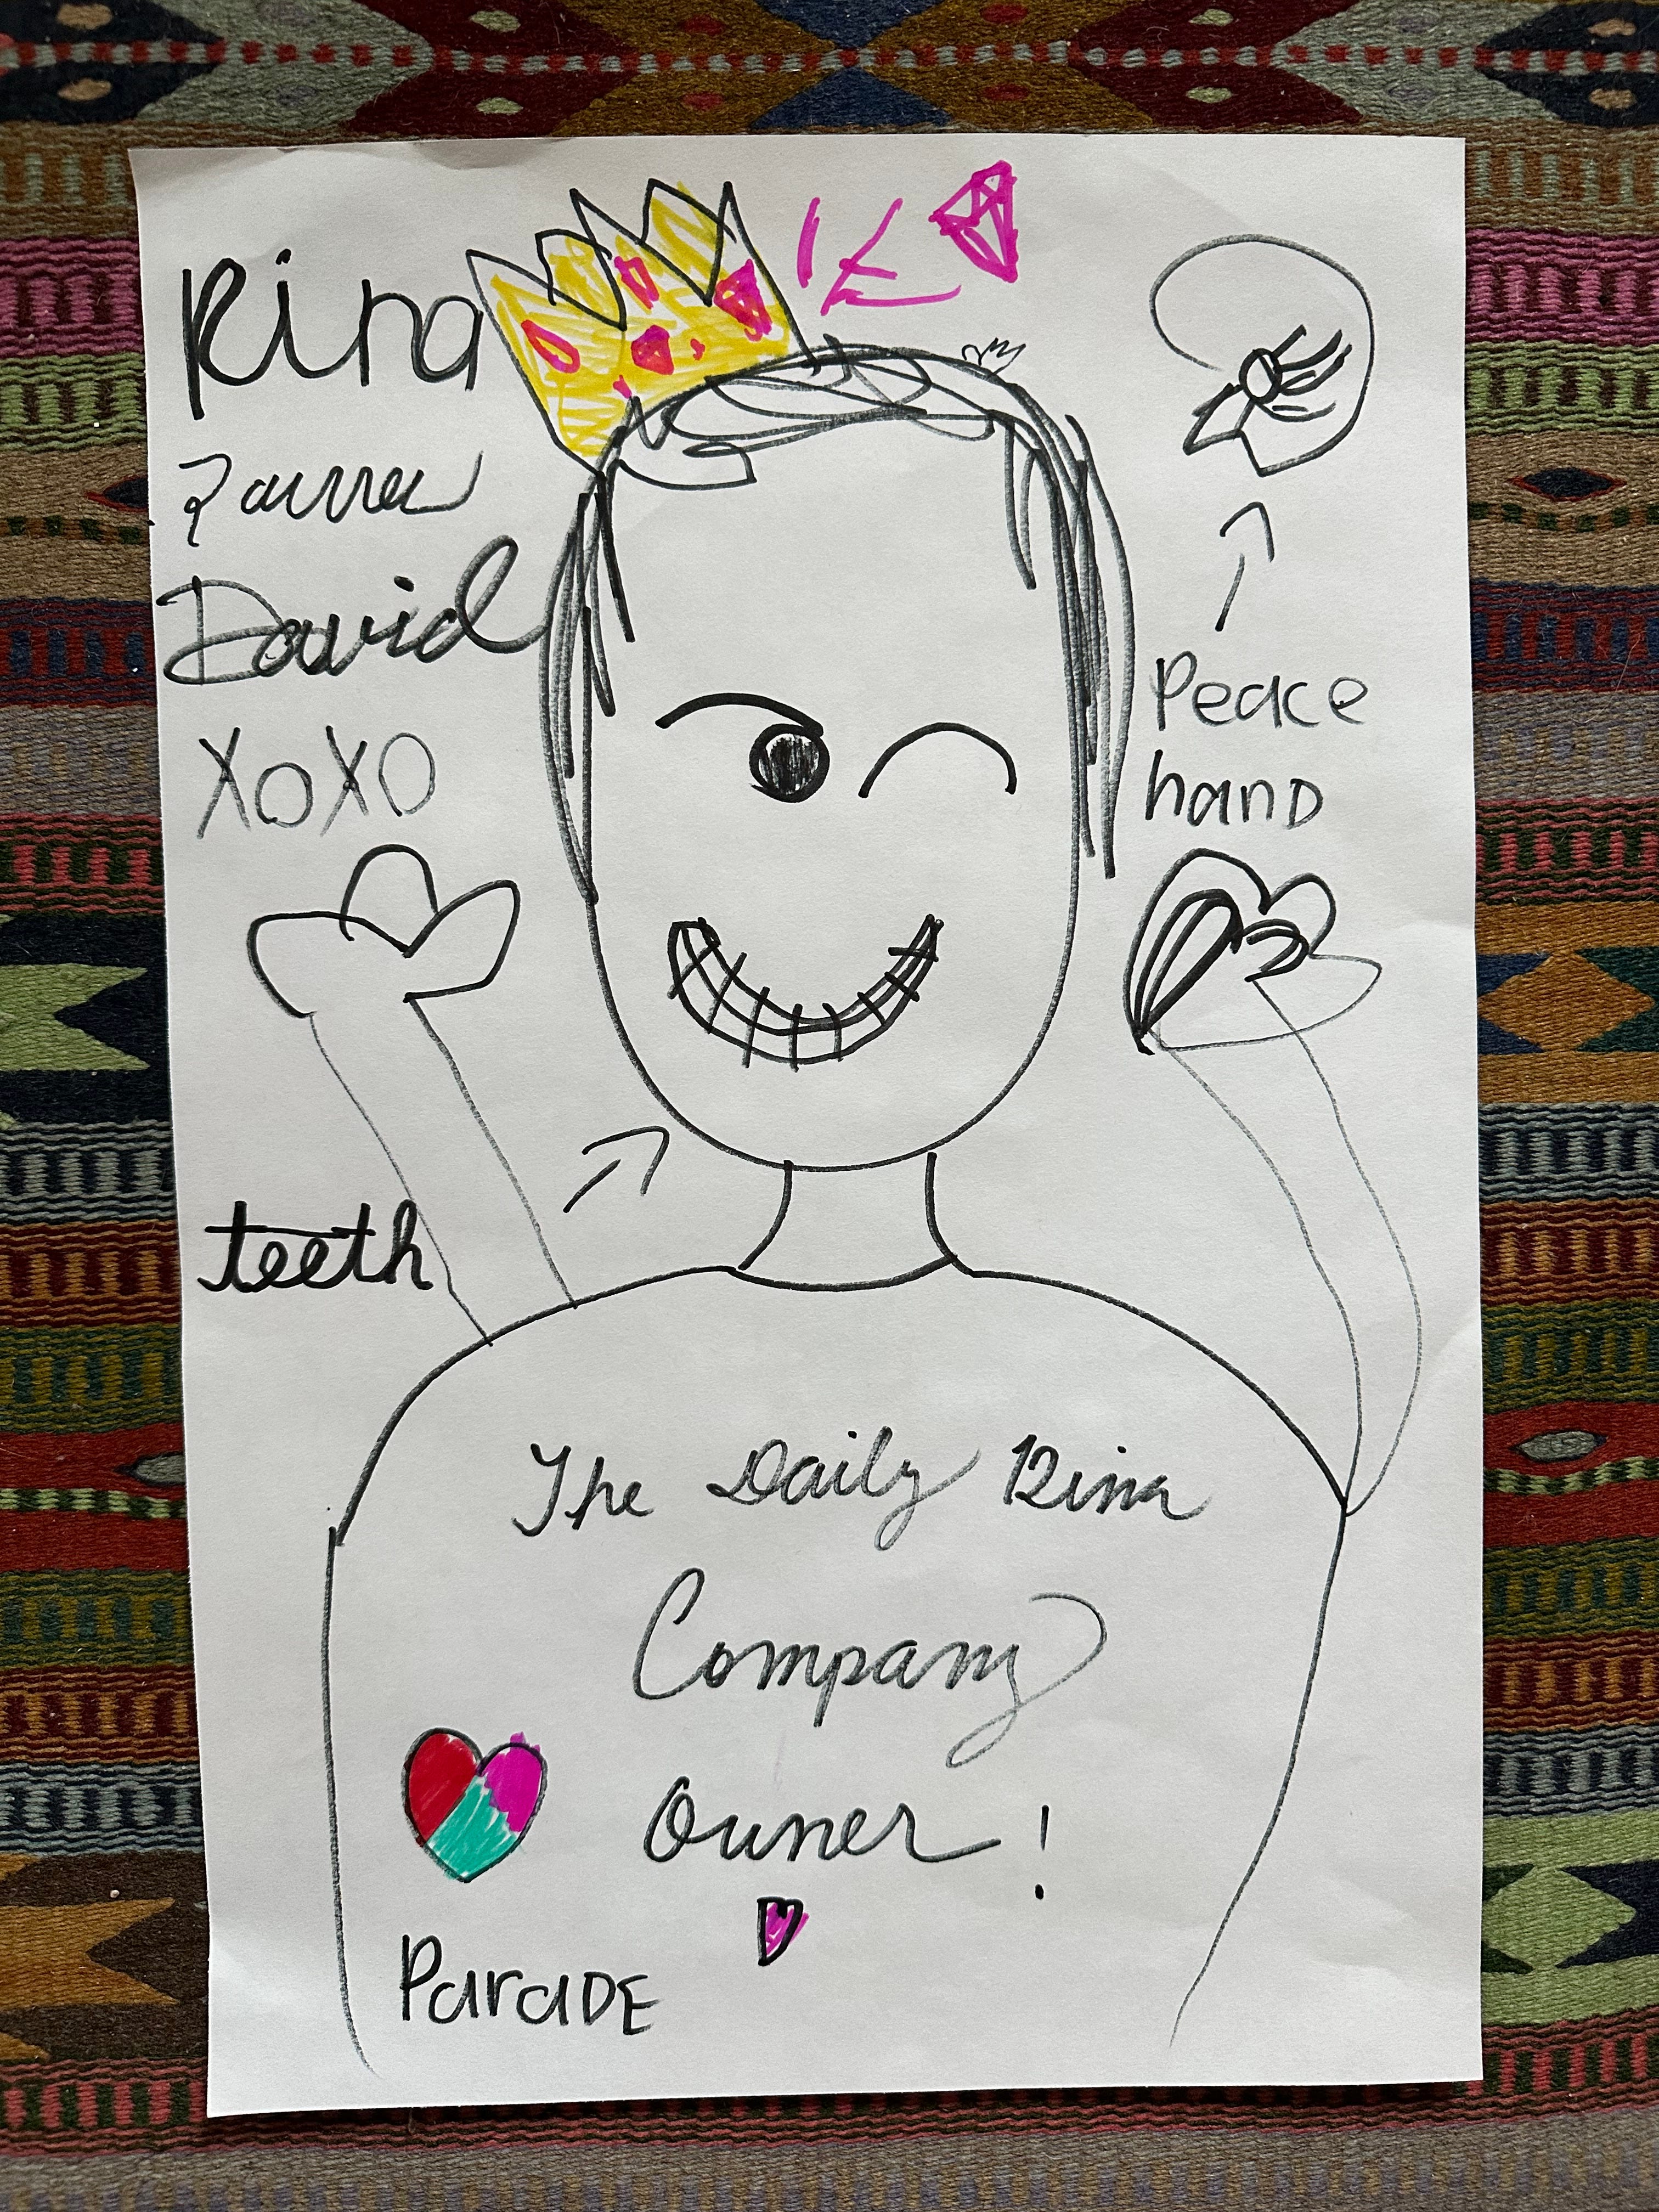 Rina
David
XOXO
Peace
hand
teeth
The Daily Rina
Company
Owner!
ParaDE